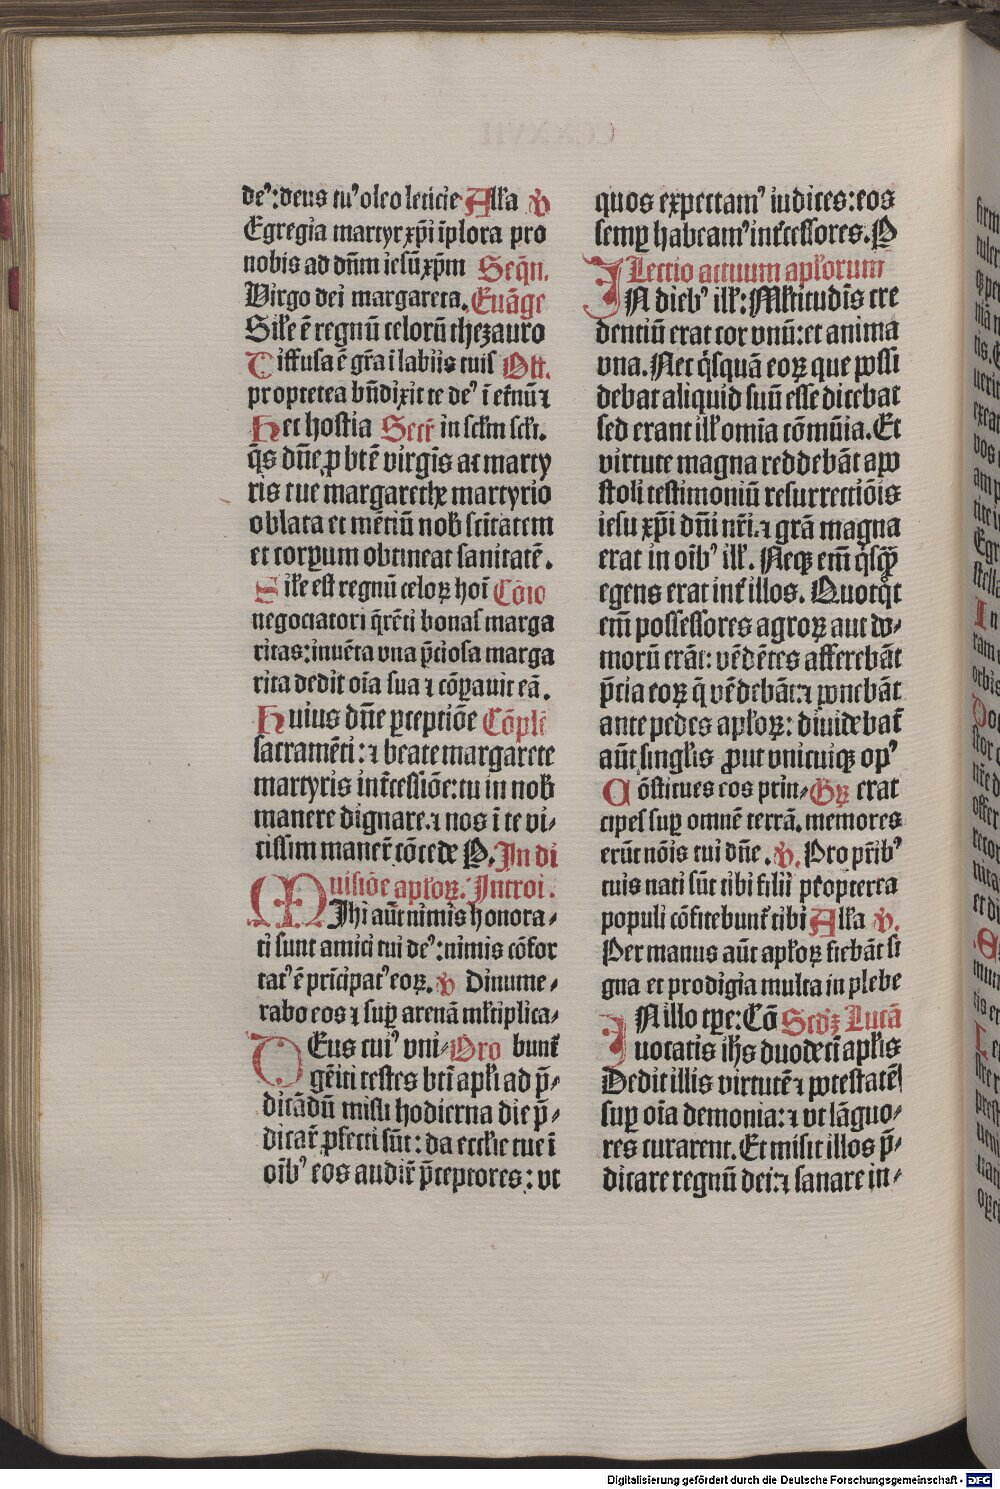 deꝰ: deus tuꝰ oleo leticie Alľa ꝟ
Egregia martyr xp̄i īplora pro
nobis ad dn̄m iesū xp̄m Seqn̄.
Virgo dei margareta. Euāge
Sil'e ē regnū celorū thezauro
Diffusa ē gr̄a ī labiis tuis Off.
propterea bn̄dixit te deꝰ ī et'nū ⁊
Hec hostia Secr̄ in scl'm scl'i.
q̄s dn̄e ꝑ btē virgīs ac marty
ris tue margarethe martyrio
oblata et mētiū nob̄ scītatem
et corpꝛum obtineat sanitatē.
Sil'e est regnū celoꝝ hoī Cōio
negociatori q̄rēti bonas marga
ritas: inuēta vna p̄ciosa marga
rita dedit oīa sua ⁊ cōꝑauit eā.
Huius dn̄e ꝑceptiōe Cōplē
sacramēti: ⁊ beate margarete
martyris int'cessiōe: tu in nob̄
manere dignare. ⁊ nos ī te vi⸗
cissim maner̄ cōcede P. In di
uisiōe apl'oꝝ. Introi.
MIhi aūt nimis honora⸗
ti sunt amici tui deꝰ: nimis cōfor
tatꝰ ē prīcipatꝰ eoꝝ. ꝟ Dinume⸗
rabo eos ⁊ suꝑ arenā ml'tiplica⸗
DEus cuiꝰ vni⸗ Oro bunt'
gēiti testes bt̄i apl'i ad p̄⸗
dicādū missi hodierna die p̄⸗
dicar̄ ꝓfecti sūt: da eccl'ie tue ī
oīb' eos audir̄ p̄ceptores: vt
quos expectamꝰ iudices: eos
semꝑ habeamꝰ int'cessores. P
Lectio actuum apl'orum
IN dieb' ill': Ml'titudīs cre
dentiū erat cor vnū: et anima
vna. Nec q̄squā eoꝝ que possi
debat aliquid suū esse dicebat
sed erant ill' omīa cōmūia. Et
virtute magna reddebāt apo
stoli testimoniū resurrectiōis
iesu xp̄i dn̄i nr̄i. ⁊ grā magna
erat in oīb' ill'. Neqꝫ em̄ q̄sq̄ꝫ
egens erat int' illos. Quotq̄t
em̄ possessores agroꝝ aut do⸗
morū erāt: vēdētes afferebāt
p̄cia eoꝝ q̄ vēdebāt: ⁊ ponebāt
ante pedes apl'oꝝ: diuidebat'
aūt singl'is ꝓut vnicuiqꝫ opꝰ
Cōstitues eos prin⸗ Gꝝ erat
cipes suꝑ omnē terrā. memores
erūt nōis tui dn̄e. ꝟ. Pro pr̄ib'
tuis nati sūt tibi filii propterea
populi cōfitebunt' tibi Alľa ꝟ.
Per manus aūt apl'oꝝ fiebāt si
gna et prodigia multa in plebe
IN illo tꝑe: Cō Scd'ꝫ Lucā
uocatis ih̄s duodecī apl'is
Dedit illis virtutē ⁊ potestatē
suꝑ oīa demonia: ⁊ vt lāguo⸗
res curarent. Et misit illos p̄⸗
dicare regnū dei: ⁊ sanare in⸗
Digitalisierung gefördert durch die Deutsche Forschungsgemeinschaft - DFG